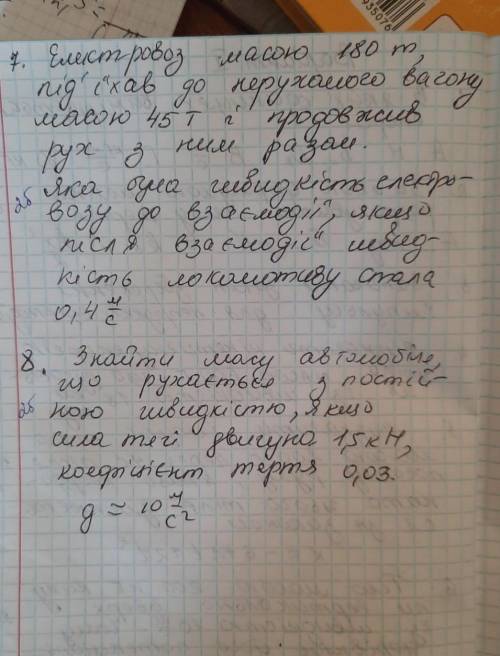 7. Електровоз масою 180 т,
під'їхав до нерухомого вагону
масою 45Т і продовжив
рух з ним разом.
2б Яка була швидкість електро-
возу до взаємодії, якщо
після взаємодії швид-
кість локомотиву стала
0,4 м/с
8. Знайти масу автомобіля,
що рухається з постій-
2б ною швидкістю, якщо
сила тяги двигуна 1,5 кН,
коефіцієнт тертя 0,03.
g ≈ 10 м/с²